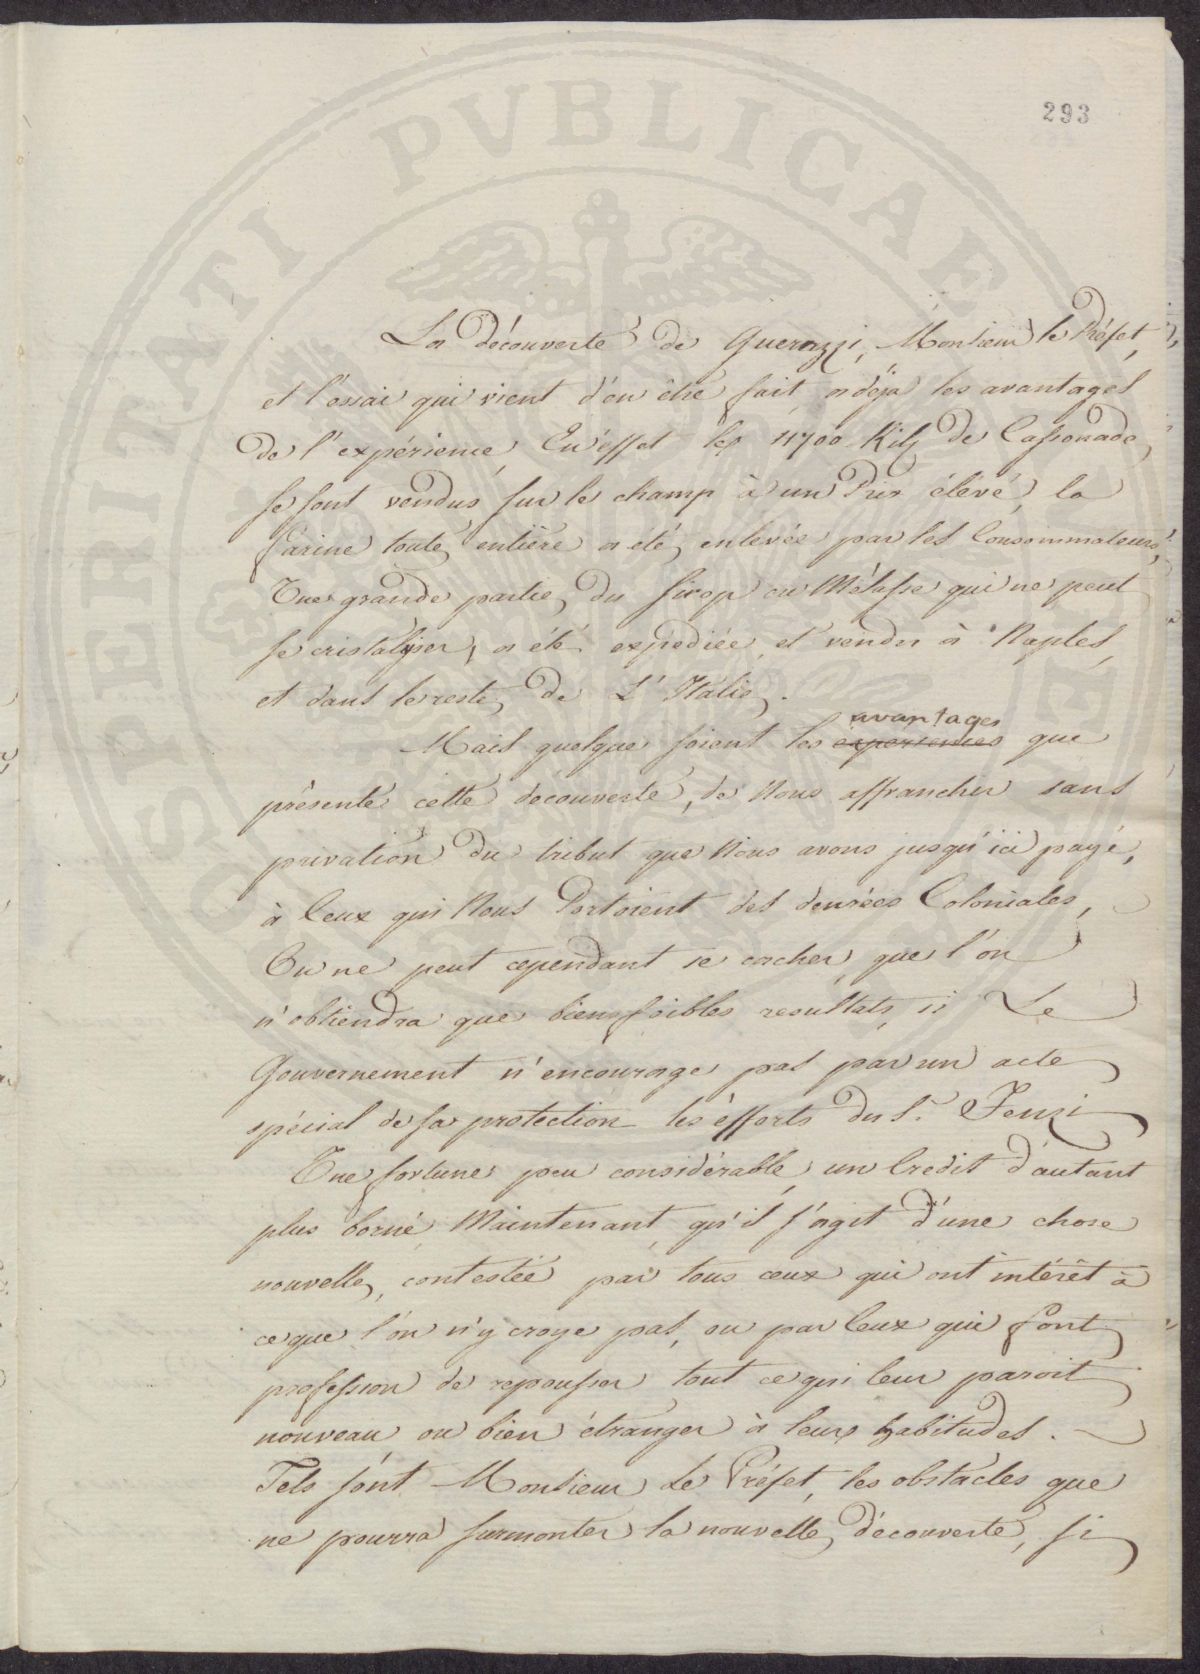 293
PROSPERITATI PVBLICAE
La découverte de Guerazzi, Monsieur le Préfet,
et l'essai qui vient d'en être fait, a déja les avantages
de l'expérience, En éffet les 11700 Kilg de Cassonade,
se sont vendus sur le champ à un Prix élévé, la
farine toute entière a été enlevée par les Consommateurs,
Une grande partie du Sirop ou Mélasse qui ne peut
se cristaliser, a été expediée et vendu à Naples,
et dans le reste de L'Italie.
Mais quelque soient les expériences avantages que
présente cette découverte, de Nous affranchir sans
privation du tribut que Nous avons jusqu'ici payé,
à Ceux qui Nous Portoient des denrées Coloniales,
On ne peut cependant se cacher que l'on
n'obtiendra que bien foibles resultats, si Le
Gouvernement n'encourage pas par un acte
spécial de sa protection les éfforts du Sr. Fenzi
Une fortune peu considérable, un Crédit d'autant
plus borné Maintenant qu'il s'agit d'une chose
nouvelle, contestée par tous ceux qui ont intérêt à
ce que l'on n'y croye pas, ou par Ceux qui font
profession de repousser tout ce qui leur paroit
nouveau, ou bien étranger à leurs habitudes.
Tels sont Monsieur Le Préfet, les obstacles que
ne pourra surmonter la nouvelle découverte, si